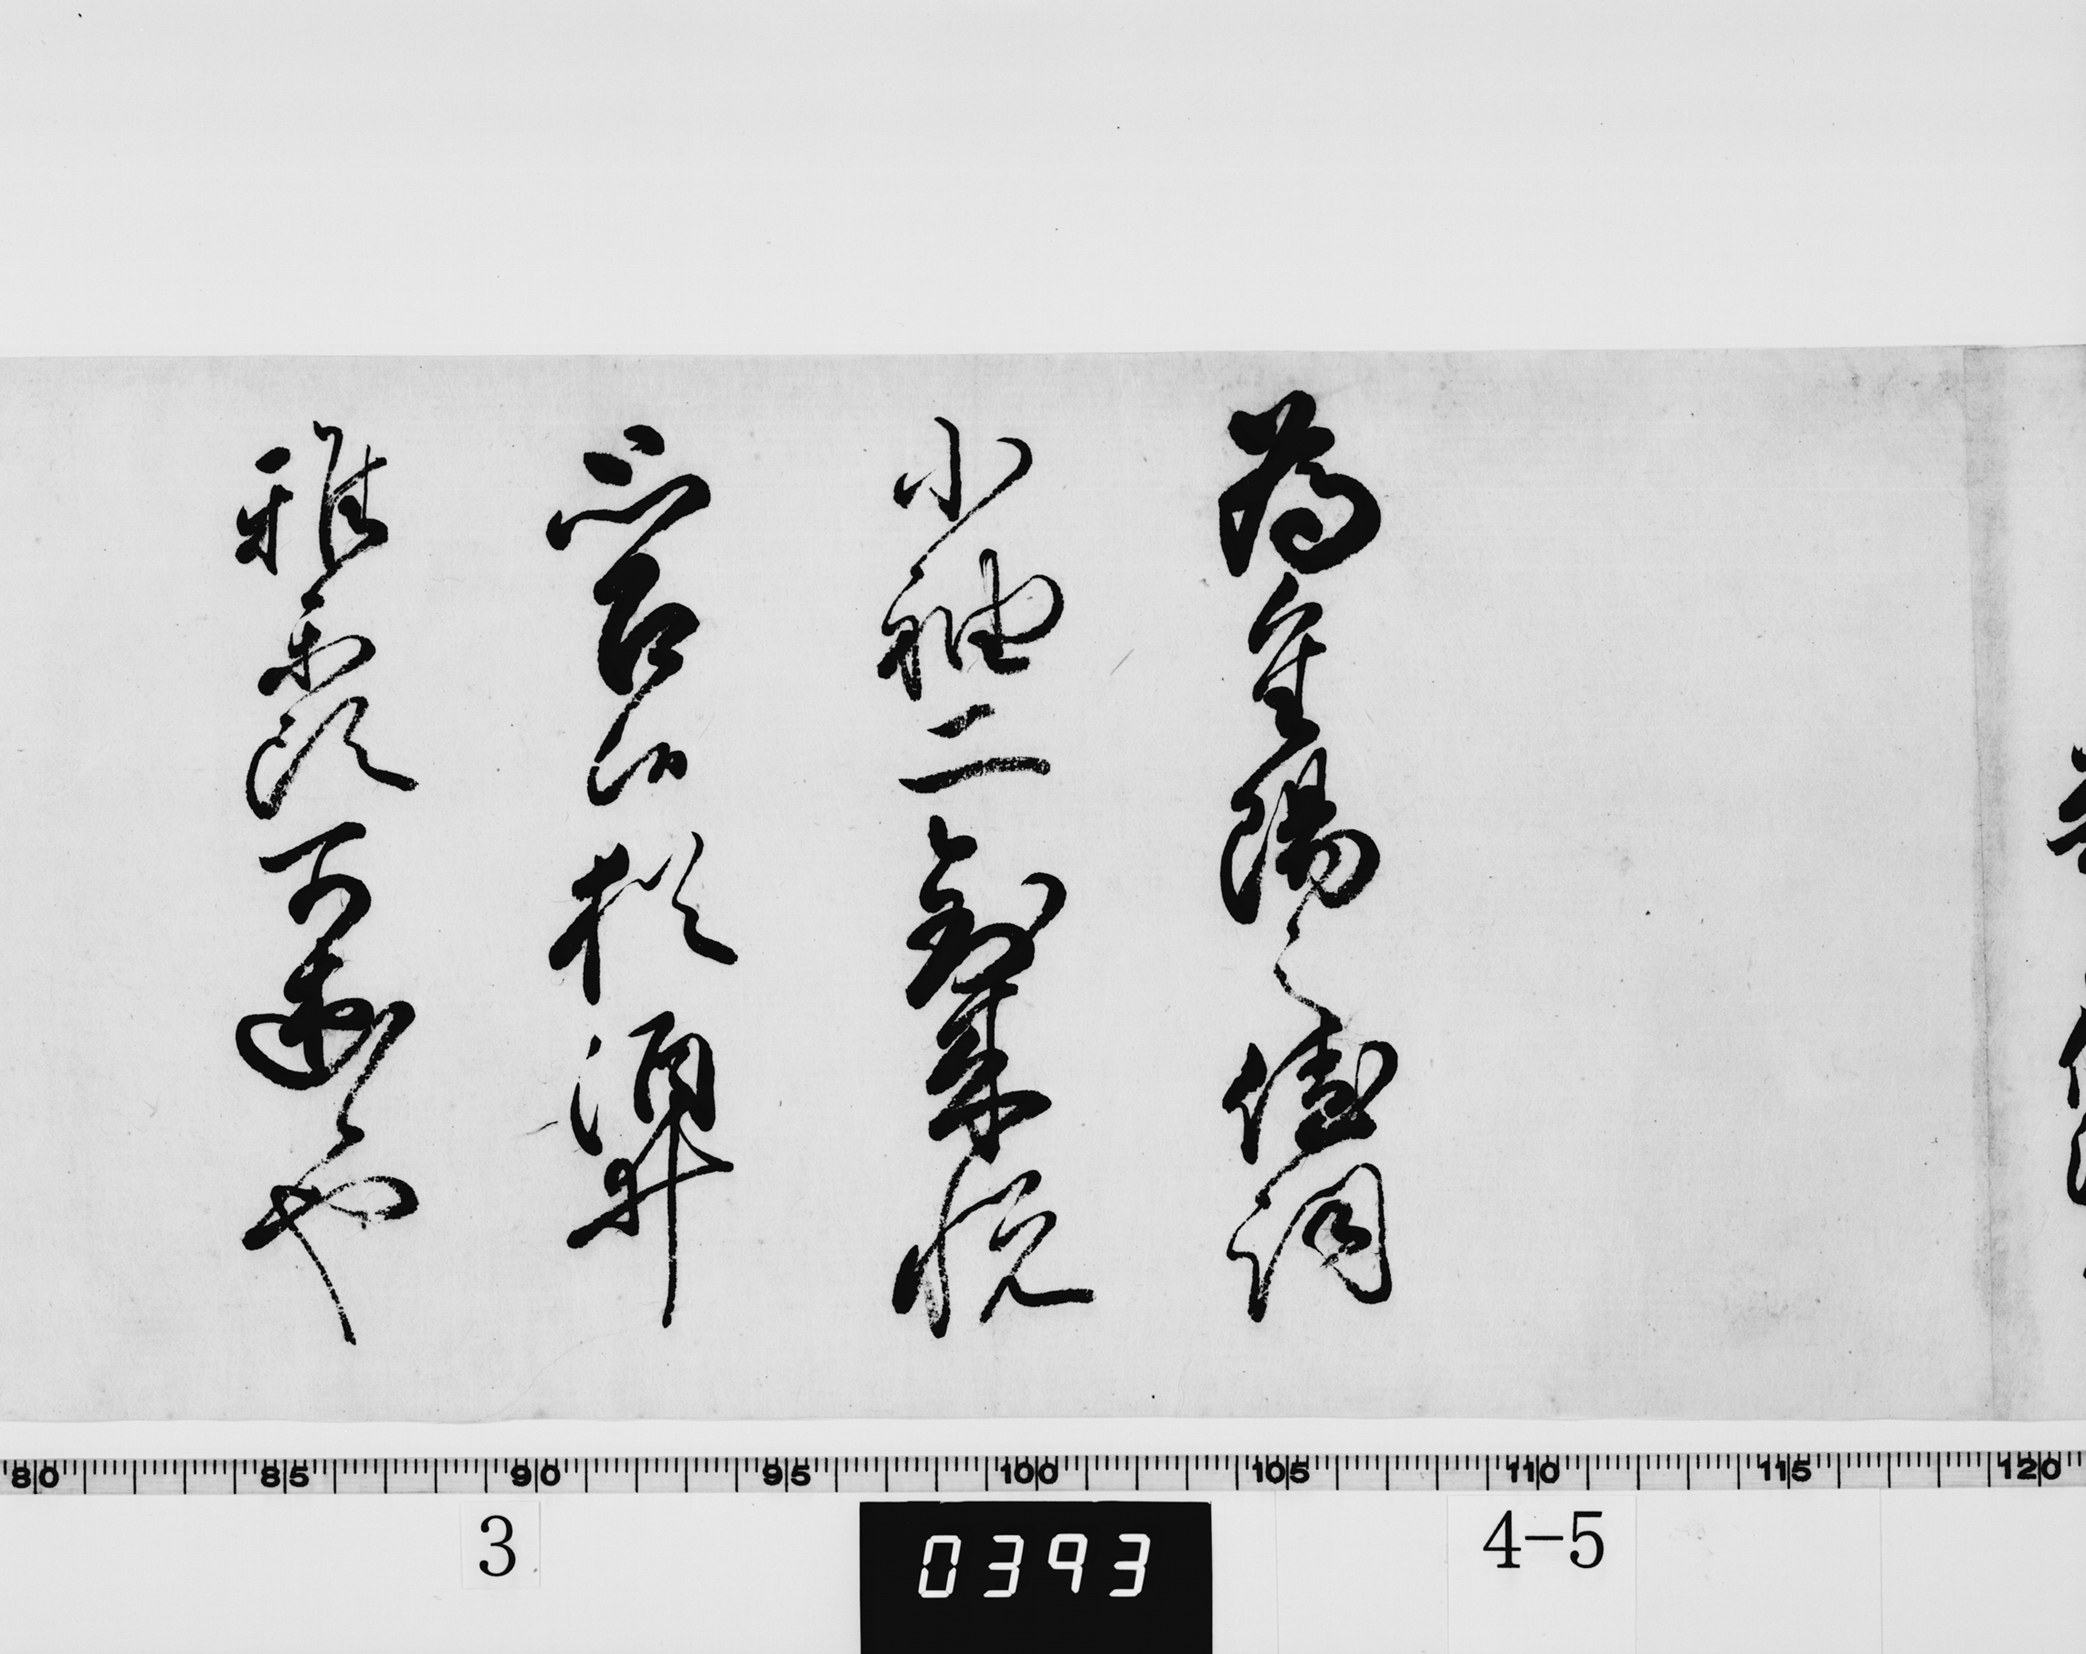 為重陽之佳詞
小袖二到来悦
思召候猶酒井
雅楽頭可述候也
80 85 90 95 100 105 110 115 120
3 0393 4-5